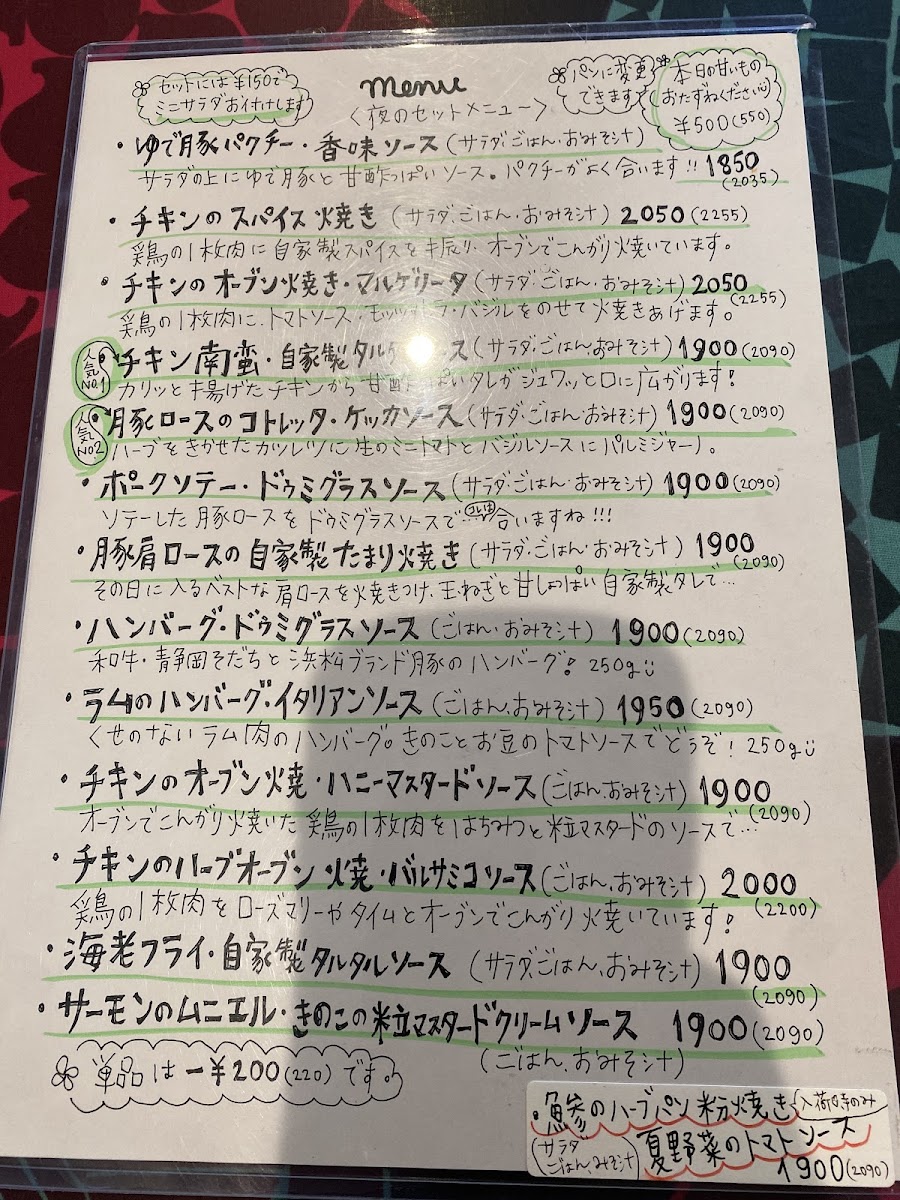 セットには¥150で
ミニサラダお付けします
menu
<夜のセットメニュー>
パンに変更
できます
本日の甘いもの
おたずねください
¥500(550)
・ゆで豚パクチー・香味ソース(サラダ、ごはん、おみそ汁)
サラダの上にゆで豚と甘酢っぱいソース。パクチーがよく合います!! 1850
(2035)
・チキンのスパイス焼き(サラダ、ごはん・おみそ汁) 2050(2255)
鶏の1枚肉に自家製スパイスを振り、オーブンでこんがり焼いています。
・チキンのオーブン焼き・マルゲリータ(サラダ・ごはん・おみそ汁) 2050
鶏の1枚肉に、トマトソース、モッツァレラ・バジルをのせて焼きあげます。(2255)
人気No.1
・チキン南蛮・自家製タルタルソース(サラダ・ごはん、おみそ汁) 1900(2090)
カリッと揚げたチキンから甘酢っぱいタレがジュワッと口に広がります!
人気No2
・豚ロースのコトレッタ・ケッカソース(サラダ・ごはん・おみそ汁) 1900(2090)
ハーブをきかせたカツレツに生のミートマトとバジルソースにパルミジャーノ。
・ポークソテー・ドゥミグラスソース(サラダ・ごはん・おみそ汁) 1900(2090)
ソテーした豚ロースをドゥミグラスソースで… 合いますね!!!
・豚肩ロースの自家製たまり焼き(サラダ・ごはん・おみそ汁) 1900
(2090)
その日に入るベストな肩ロースを焼きつけ、玉ねぎと甘しょっぱい自家製タレで…
・ハンバーグ・ドゥミグラスソース(ごはん・おみそ汁) 1900(2090)
和牛・静岡そだちと浜松ブランド豚のハンバーグ! 250g
・ラムのハンバーグ・イタリアンソース(ごはん、おみそ汁) 1950(2090)
くせのないラム肉のハンバーグ。きのことお豆のトマトソースでどうぞ! 250g
・チキンのオーブン焼・ハニーマスタードソース(ごはん、おみそ汁) 1900
(2090)
オーブンでこんがり焼いた鶏の1枚肉をはちみつと粒マスタードのソースで…
・チキンのハーブオーブン焼・バルサミコソース(ごはん、おみそ汁) 2000
(2200)
鶏の1枚肉をローズマリーやタイムとオーブンでこんがり焼いています!
・海老フライ・自家製タルタルソース(サラダ、ごはん、おみそ汁) 1900
(2090)
・サーモンのムニエル・きのこの粒マスタードクリームソース 1900(2090)
(ごはん、おみそ汁)
単品は-¥200(220)です。
・鯵のハーブパン粉焼き 入荷時のみ
夏野菜のトマトソース
(サラダ
ごはん、みそ汁)
1900(2090)